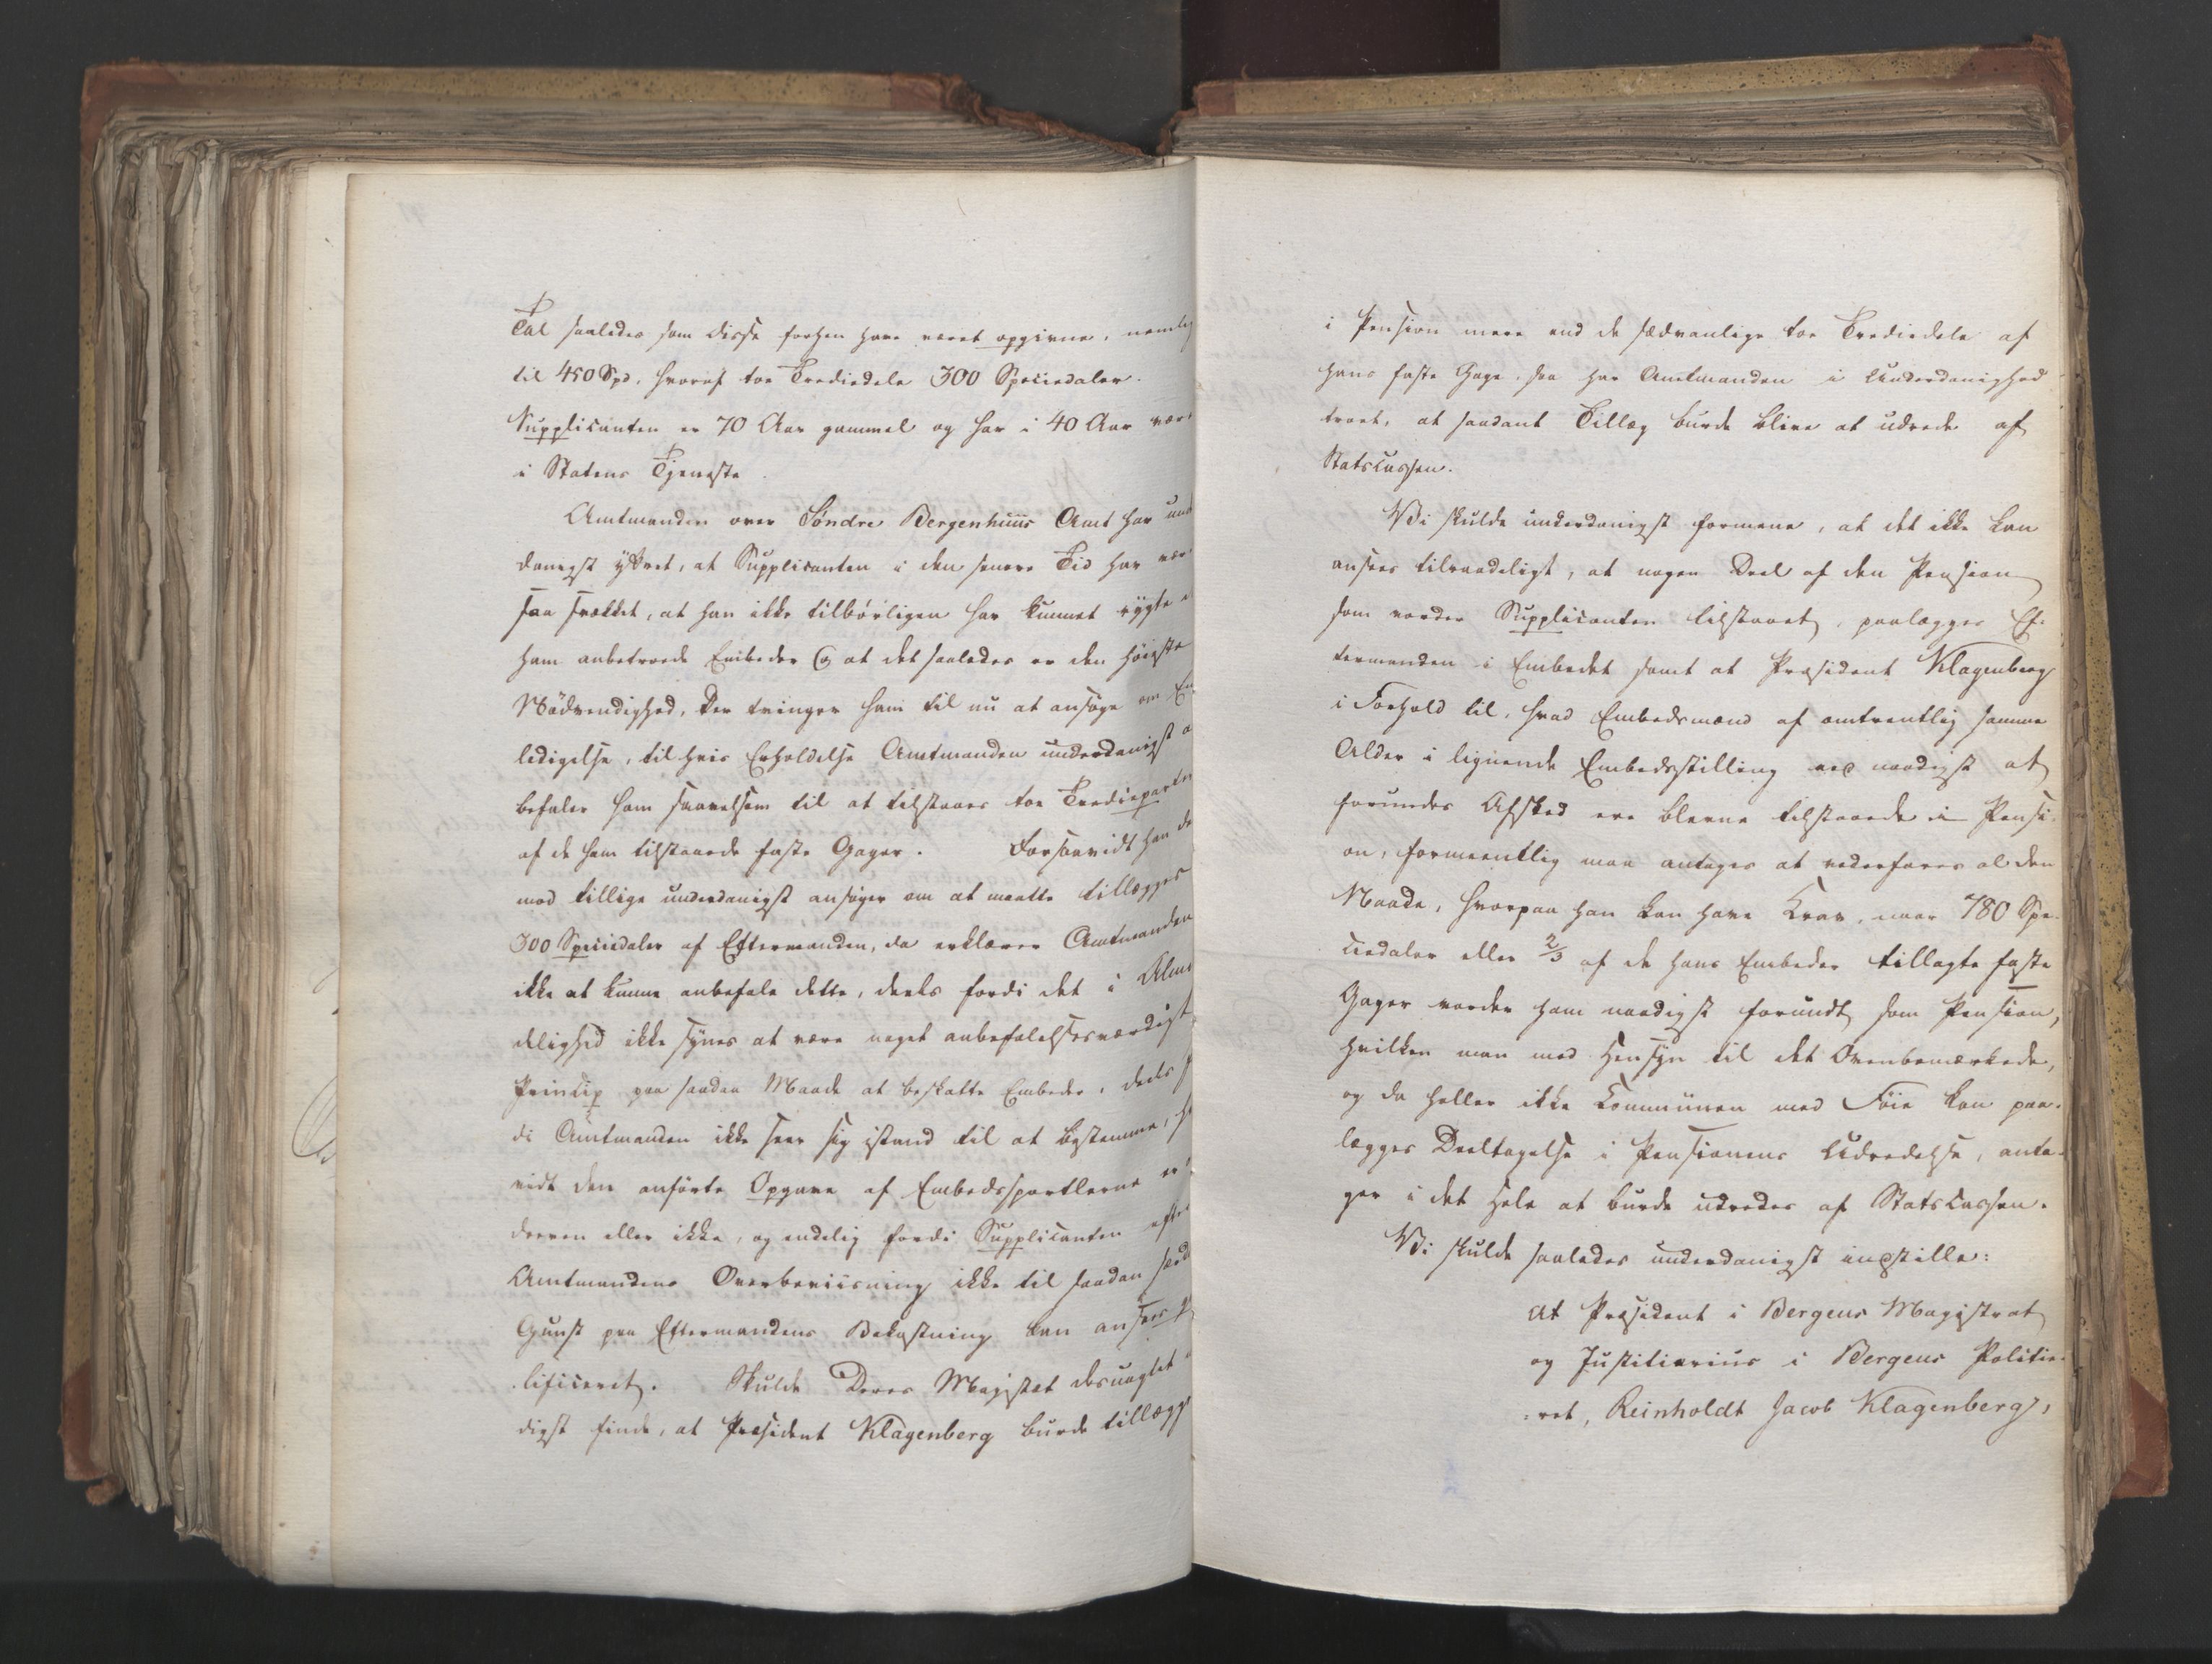 Tal saaledes som disse forhen have været opgivne, nemlig
til 450 Spd. hvoraf toe Trediedele 300 Speciedaler.
Supplicanten er 70 Aar gammel og har i 40 Aar være
i Statens Tjeneste
Amtmanden over Søndre Bergenhuus Amt har und
danigst yttret, at Supplicanten i den senere Tid har vær
saa svækket, at han ikke tilbørligen har kunnet rygte
ham anbetroede Embeder og at det saaledes er den høieste
Nødvendighed, der tvinger ham til nu at ansøge om En
ledigelse, til hvis Erholdelse Amtmanden underdanigst a
befaler ham saavelsom til at tilstaaes toe Trediepartn
af de ham tilstaaede faste Gager. Forsaavidt han de
mod tillige underdanigst ansøger om at maatte tillægges
300 Speciedaler af Eftermanden, da erklærer Amtmanden
ikke at kunne anbefale dette, deels fordi det i Almi
delighed ikke synes at være noget anbefalelsesværdigt
Princip paa saadan Maade at beskatte Embeder, deels f
di Amtmanden ikke seer sig istand til at bestemme, h
vidt den anførte Opgave af Embedssportlerne er
dreven eller ikke, og endelig fordi Supplicanten efter
Amtmandens Overbeviisning ikke til saadan særd
Gunst paa Eftermandens Bekostning kan ansees q
lificeret. Skulde Deres Majestæt desuagtet
digst finde, at Præsident Klagenberg burde tillægge
i Pension mere end de sædvanlige toe Trediedele af
hans faste Gage, saa har Amtmanden i Underdanighed
troet, at saadant Tillæg burde blive at udrede af
Statscassen.
Vi skulde underdanigst formene, at det ikke kan
ansees tilraadeligt, at nogen Deel af den Pension
som vorder Supplicanten tilstaaet, paalægges Ef-
termanden i Embedet samt at Præsident Klagenberg
i Forhold til, hvad Embedsmænd af omtrentlig samme
Alder i lignende Embedsstilling ved naadigst at
forundes Afsked ere blevne tilstaaede i Pensi-
on, formeentlig maa antages at vederfares al den
Maade, hvorpaa han kan have Krav, naar 780 Spe-
ciedaler eller 2/3 af de hans Embeder tillagte faste
Gager vorder ham naadigst forundt som Pension,
hvilken man med Hensyn til det Ovenbemærkede,
og da heller ikke Communen med Føie kan paa-
lægges Deeltagelse i Pensionens Udredelse, anta-
ger i det Hele at burde udredes af Statscassen.
Vi skulde saaledes underdanigst indstille:
at Præsident i Bergens Magistrat
og Justitiarius i Bergens Politie-
:ret, Reinholdt Jacob Klagenberg,